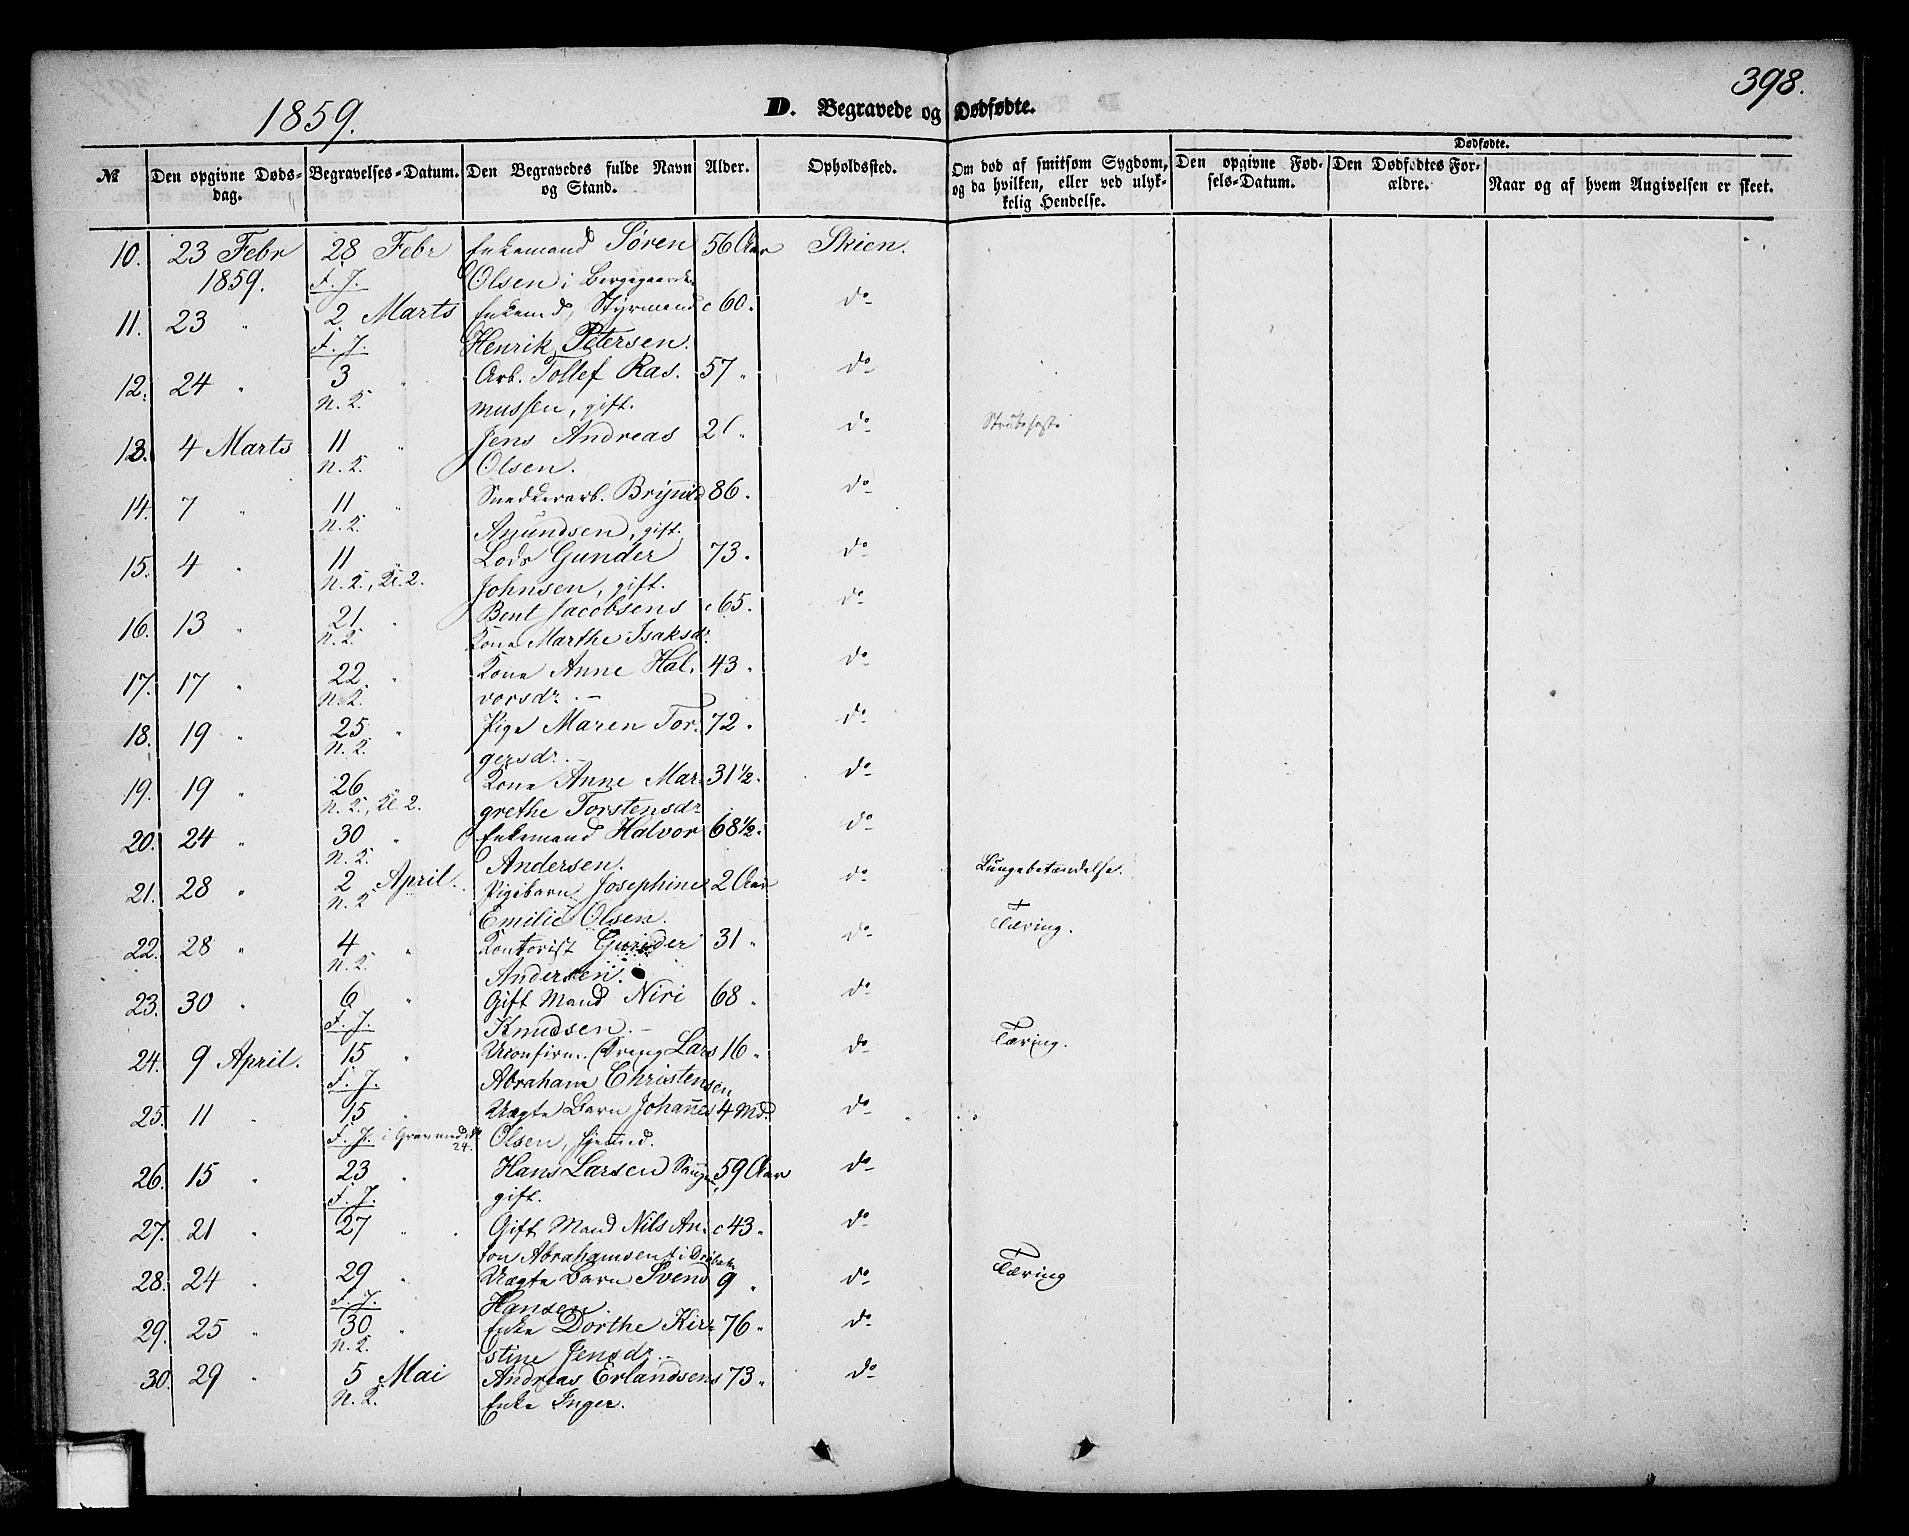 398.
1859.
D. Begravede og Dødfødte.
Dødfødte.
№ Den opgivne Døds- Begravelses-Datum. Den Begravedes fulde Navn Alder. Opholdssted. Om død af smitsom Sygdom, Den opgivne Fød- Den Dødfødtes For- Naar og af hvem Angivelsen er skeet.
dag. og Stand. og da hvilken, eller ved ulyk- sels-Datum. ældre.
kelig Hendelse.
10. 23 Febr 28 Febr Enkemand Søren 56 Aar Skien.
1859. F. J. Olsen i
11. 23 " 2 Marts Enkemd, Styrmand c 60. do
F. J. Henrik Petersen.
12. 24 " 3 " Arb. Tollef Ras. 57 " do
N. K. mussen, gift.
13. 4 Marts 11 " Jens Andreas 21 " do
N. K. Olsen.
14. 7 " 11 " Snedkerarb. Brynild 86. do
N. K. Amundsen, gift.
15. 4 " 11 Lods Gunder 73. do
N. K., Kl. 2. Johnsen, gift.
16. 13 " 21 " Bent Jacobsens c 65. do
N. K. Kone Marthe Isaksdr.
17. 17 " 22 " Kone Anne Hal. 43. do
N. K. vorsdr. –
18. 19 " 25 " Pige Maren Tor. 72. do
N. K. gersdr. –
19. 19 " 26 " Kone Anne Mar. 31 ½. do
N. K., Kl. 2. grethe Torstensdr
20. 24 " 30 " Enkemand Halvor 68 ½. do
N. K. Andersen.
21. 28 " 2 April. Pigebarn Josephine 2 Aar do Lungebetændelse.
N. K. Emilie Olsen.
22. 28 " 4 " Kontorist Gunder 31 " do Tæring.
N. K. Andersen.
23. 30 " 6 " Gift Mand Niri 68 " do
F. J. Knudsen. –
24. 9 April. 15 " Uconfirm. Dreng Lars 16 " do Tæring.
F. J. Abraham Christensen
25. 11 " 15 " Uægte Barn Johannes 4 Md. do
F. J. i 24. Olsen,
26. 15 " 23 " Hans Larsen 59 Aar do
F. J. gift.
27. 21 " 27 " Gift Mand Nils An. c 43 " do
ton Abrahamsen
28. 24 " 29 " Uægte Barn Svend 9 " do Tæring
F. J. Hansen.
29. 25 " 30 " Enke Dorthe Kir- 76 " do
N. K. stine Jensdr. –
30. 29 " 5 Mai Andreas Erlandsens 73 " do
N. K. Enke Inger.